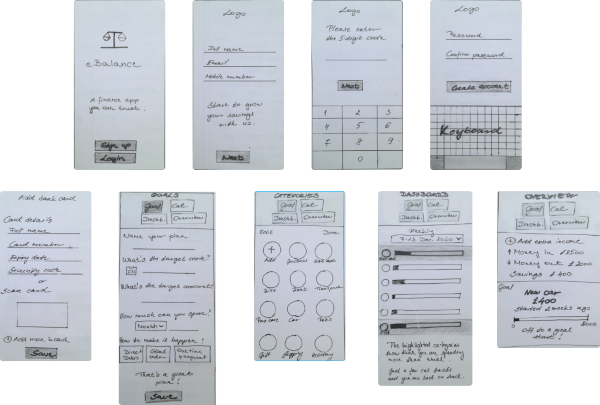 eBalance
A finance app
you can trust.
Sign up
Login
Logo
Full name
Email
Mobile number
Start to grow
your savings
with us.
Next
Logo
Please enter
the 5 digit code
Next
1 2 3
4 5 6
7 8 9
0
Logo
Password
Confirm password
Create account
Keyboard
Add bank card
Card details
Full name
Card number
Expiry date
Security code
or
Scan card
Add more card
Save
GOALS
Goal Cat.
Dashb. Overview
Name your plan
What's the target amount?
How much can you spare?
Month
How to make it happen?
Direct
Debit
One time
payment
That's a great
plan!
Save
CATEGORIES
Goal Cat.
Dashb. Overview
Edit
Done
Add
Car
Gift
DASHBOARD
Goal Cat.
Dashb. Overview
Weekly
7-13 Dec. 2020
The highlighted categories
show that you are spending
more than usual.
Just a few cut backs
and you are back on track.
OVERVIEW
Goal Cat.
Dashb. Overview
Add extra income
Money in £2500
Money out £2000
Savings £400
Goal
New car
£400
started 2 weeks ago
0
Off to a great
start!